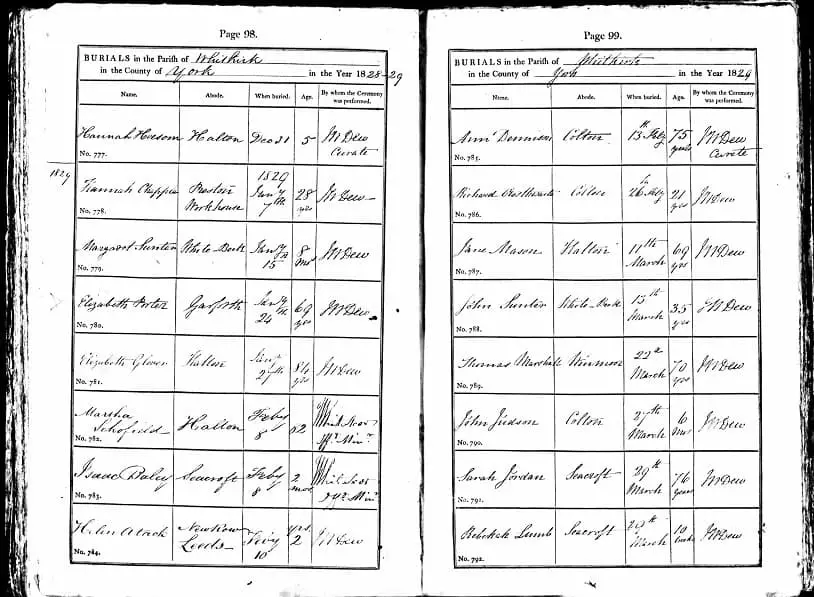 Page 98.
BURIALS in the Parish of Whitkirk
in the County of York in the Year 1828-29
Name. Abode. When buried. Age. By whom the Ceremony was performed.
Hannah Halton Dec 31 5 Dew
Curate
No. 777.
1829
Hannah Preston Workhouse 1829 Jany 7th 28 yrs Dew
No. 778.
Margaret Hunter White Jany 15 8 Mos Dew
No. 779.
Elizabeth Porter Garforth Jany 24th 69 yrs Dew
No. 780.
Elizabeth Glover Halton Jany 27th 84 yrs Dew
No. 781.
Martha Schofield Halton Feby 8 62
No. 782.
Isaac Seacroft Feby 8 2 mos
No. 783.
Helen New Row Leeds Feby 10 yrs. 2 Dew
No. 784.
Page 99.
BURIALS in the Parish of Whitkirk
in the County of York in the Year 1829
Name. Abode. When buried. Age. By whom the Ceremony was performed.
Ann Dennison Colton 13th Feby 75 years Dew
Curate
No. 785.
Richard Colton 26 Feby 21 yrs Dew
No. 786.
Jane Mason Halton 11th March 69 yrs Dew
No. 787.
John Hunter White 13th March 35 yrs Dew
No. 788.
Thomas Marshall 22d March 70 yrs Dew
No. 789.
John Judson Colton 27th March 6 Mos Dew
No. 790.
Sarah Jordan Seacroft 29th March 76 years Dew
No. 791.
Rebekah Lumb Seacroft 29th March 10 weeks Dew
No. 792.